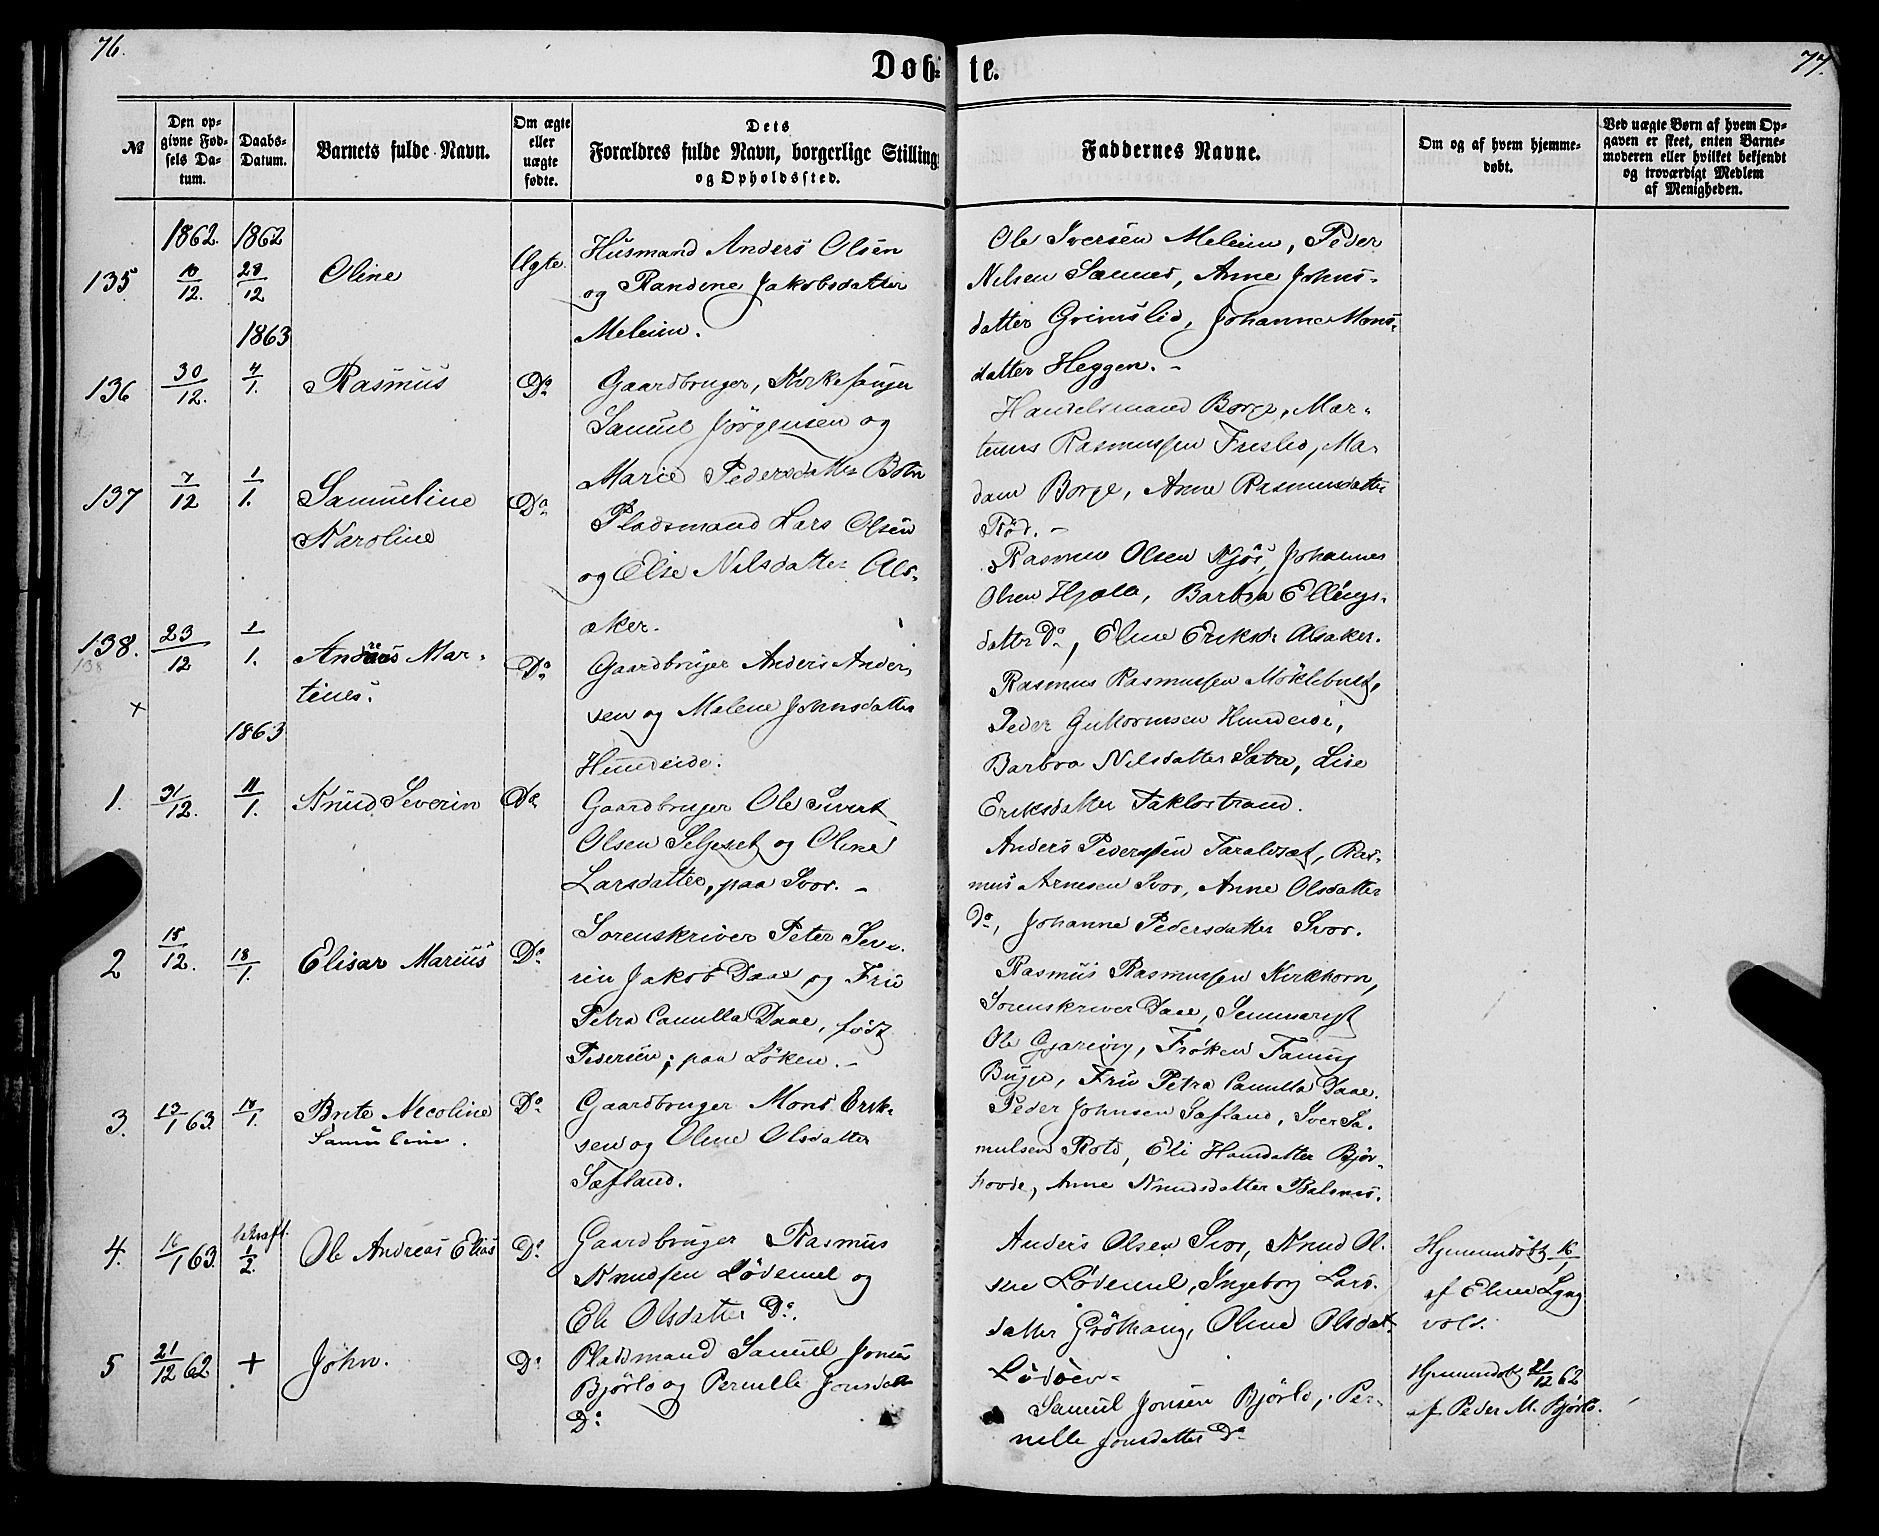 76.
77.
Dob- te.
№
Den op-
givne Fød-
sels Da-
tum.
Daabs-
Datum.
Barnets fulde Navn.
Om ægte
eller
uægte
fødte.
Dets
Forældres fulde Navn, borgerlige Stilling
og Opholdssted.
Faddernes Navne.
Om og af hvem hjemme-
døbt.
Ved uægte Børn af hvem Op-
gaven er skeet, enten Barne-
moderen eller hvilket bekjendt
og troværdigt Medlem
af Menigheden.
1862. 1862
135 10/12. 28/12 Oline Ægte
Husmand Anders Olsen
og Randine Jakobsdatter
Meleim.
Ole Iversen Meleim, Peder
Nilsen Sæmes, Anne Johns-
datter Grimslid, Johanne Mons-
datter Heggen. -
1863
136 30/12. 4/1. Rasmus Do
Gaardbruger, Kirkesanger
Samuel Jörgensen og
Marie Pedersdatter Botn
Handelsmand Borge, Mar-
tinus Rasmussen Freslid, Ma-
dam Borge, Anne Rasmusdatter
Rød. -
137 7/12 1/1. Samueline
Karoline
Do
Pladsmand Lars Olsen
og Else Nilsdatter Als-
aker.
Rasmus Olsen Kjös, Johannes
Olsen Hjelle, Barbra Ellings-
datter Do, Eline Eriksd: Alsaker.
138. 23/12 1/1. Andreas Mar-
tines.
138
+
Do
Gaardbruger Anders Ander-
sen og Malene Johnsdatter
Hundeide.
Rasmus Rasmussen Möklebust,
Peder Guttormsen Hundeide,
Barbra Nilsdatter Sætre, Lise
Eriksdatter Taklostrand.
1863
1. 31/12. 11/1. Knud Severin Do
Gaardbruger Ole Sivert
Olsen Seljeset og Oline
Larsdatter, paa Svor. -
Anders Pedersen Taraldset, Ras-
mus Arnesen Svor, Anne Olsdatter
Do, Johanne Pedersdatter Svor.
2 15/12. 18/1. Elisar Marius Do
Sorenskriver Peter Seve-
rin Jakob Daae og Fru
Petra Camilla Daae, født
Pedersen, paa Löken. -
Rasmus Rasmussen Kirkhorn,
Sorenskriver Daae, Seminarist
Ole Gjæring, Frøken Fanny
Bugge, Fru Petra Camilla Daae.
3. 13/1 63. 18/1. Brite Nicoline
Samueline.
Do
Gaardbruger Mons Erik-
sen og Oline Olsdatter
Sætland.
Peder Johnsen Sætland, Iver Sa-
mulsen Roti, Eli Hansdatter Bjør-
hovde, Anne Knudsdatter Balsnes.
4. 16/1 63. 1/2. Ole Andreas Elias Do
Gaardbruger Rasmus
Knudsen Lødemel og
Eli Olsdatter Do.
Anders Olsen Svor, Knud Ol-
sen Lødemel, Ingeborg Lars-
datter Grøthaug, Oline Olsdat.
Lødöen.
Hjemmedöbt 16/1
af Eline Lyng
vold.
5 21/12 62 + John. Do
Pladsmand Samuel Jonsen
Bjørlo og Pernille Jonsdatter
Do
Samuel Jonsen Bjørlo, Per-
nille Jonsdatter Do
Hjemmedöbt 21/12 62
af Peder M. Bjørlo.